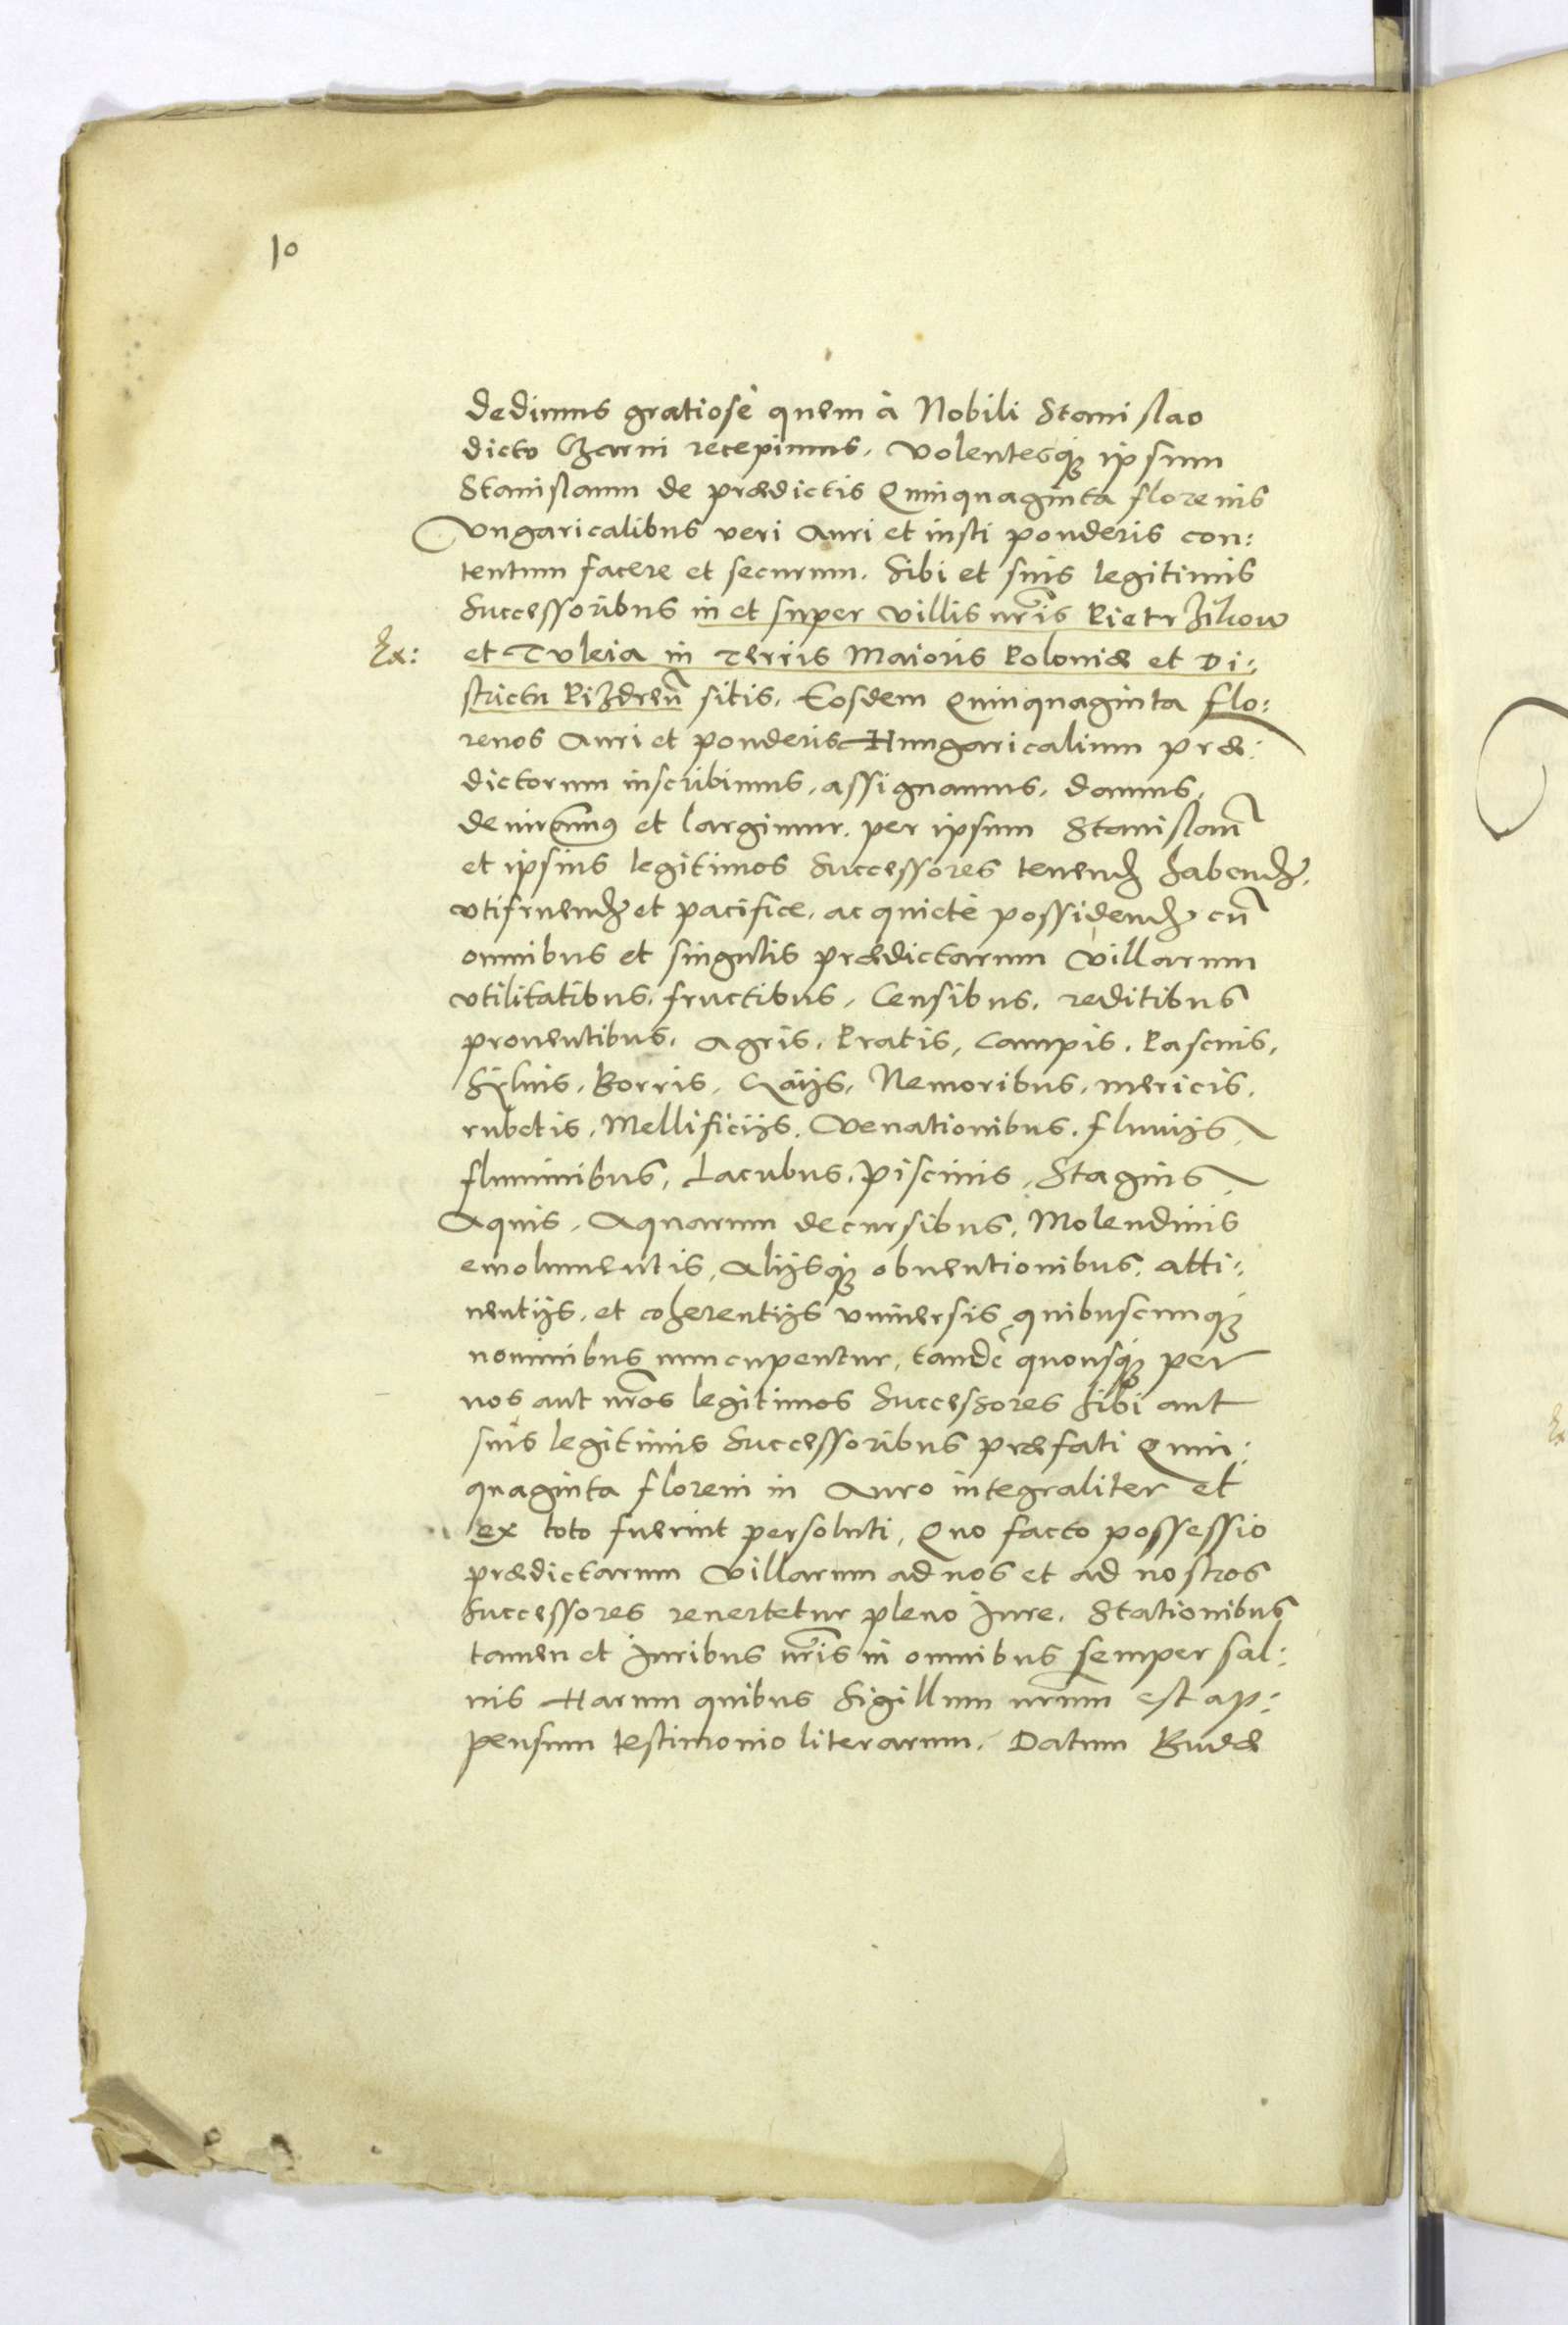 10
dedimus gratiosè quem à Nobili Stanislao
dicto Czarni recepimus, Volentesq́ꝫ ipsum
Stanislaum de prædictis Quinquaginta florenis
Vngaricalibus veri Auri et iusti ponderis con:
tentum facere et securum. Sibi et suis legitimis
Successoribus in et super Villis nr̃is Pietrzikow
Ex:
et Tuleia in Terris Maioris Poloniæ et Di:
strictu Pizdren̄ sitis, Eosdem Quinquaginta flo:
renos Auri et ponderis Hungaricalium præ:
dictorum inscribimus, assignamus, damus,
deuir
et largimur. per ipsum Stanislaũ
et ipsius legitimos Successores tenend̛ habend̛.
vtifruend̛ et pacifice, ac quietè possidend̛ cũ
omnibus et singulis prædictarum Villarum
vtilitatibus, fructibus, Censibus, reditibus
prouentibus, Agris, Pratis, Campis, Pascuis,
Syluis, Borris, Gaijs, Nemoribus, mericis,
rubetis, Mellificijs, Venationibus, fluuijs,
fluminibus, Lacubus, piscinis, Stagnis,
Aquis, Aquarum decursibus, Molendinis
emolumentis, Alijsq́ꝫ obuentionibus, atti:
nentijs, et coherentijs vniuersis quibuscunq́ꝫ
nominibus nuncupentur, tandē quousq́ꝫ per
nos aut nr̃os legitimos Successores Sibi aut
suis legitimis Successoribus præfati Quin:
quaginta floreni in Auro integraliter et
ex toto fuerint persoluti, Quo facto possessio
prædictarum Villarum ad nos et ad nostros
Successores reuertetur pleno Iure. Stationibus
tamen et Iuribus nr̃is in omnibus semper sal:
uis Harum quibus Sigillum nr̃um est ap:
pensum testimonio literarum. Datum Budæ